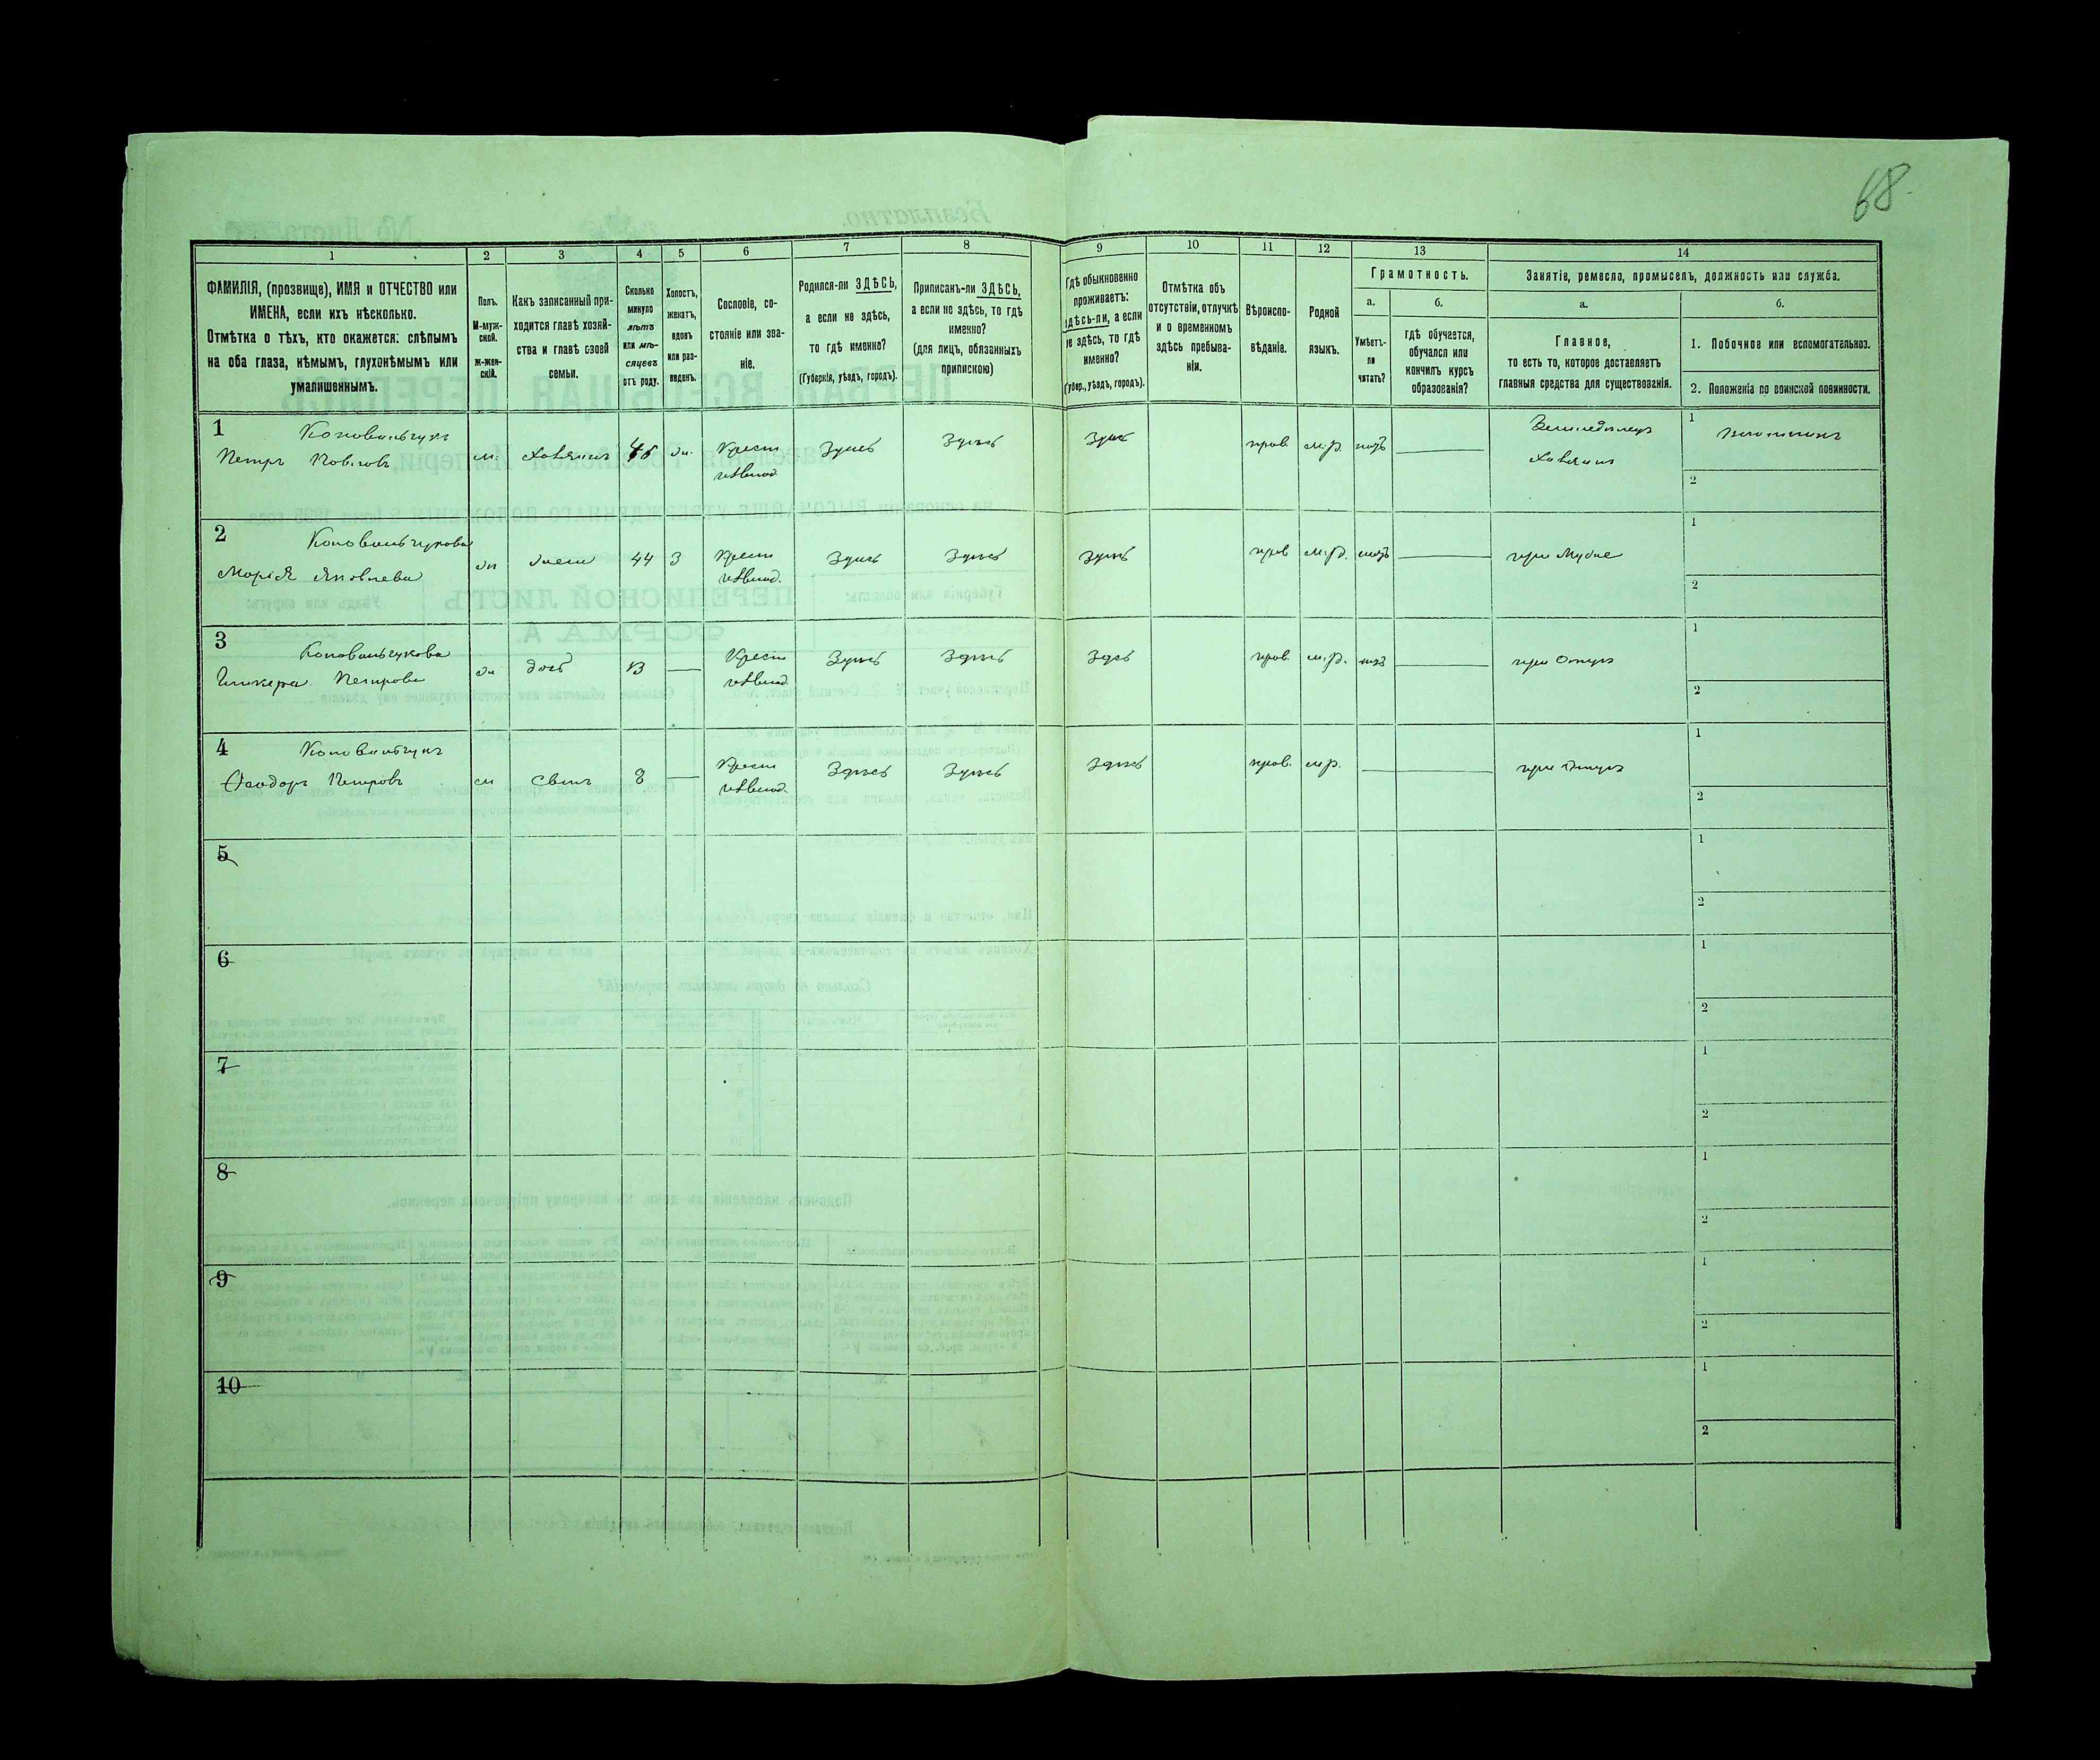 68.
1
2
3
4
5
6
7
8
9
10
11
12
13
14
ФАМИЛІЯ, (прозвище), ИМЯ и ОТЧЕСТВО или
ИМЕНА, если ихъ нѣсколько.
Отмѣтка о тѣхъ, кто окажется: слѣпымъ
на оба глаза, нѣмымъ, глухонѣмымъ или
умалишеннымъ.
Полъ.
М-муж-
ской.
ж-жен-
скій.
Какъ записанный при-
ходится главѣ хозяй-
ства и главѣ своей
семьи.
Сколько
минуло
лѣтъ
или мѣ-
сяцевъ
отъ роду.
Холостъ,
женатъ,
вдовъ
или раз-
веденъ.
Сословіе, со-
стояніе или зва-
ніе.
Родился-ли ЗДѢСЬ,
а если не здѣсь,
то гдѣ именно?
(Губернія, уѣздъ, городъ).
Приписанъ-ли ЗДѢСЬ,
а если не здѣсь, то гдѣ
именно?
(для лицъ, обязанныхъ
припискою)
Гдѣ обыкновенно
проживаетъ:
здѣсь-ли, а если
не здѣсь, то гдѣ
именно?
(губер., уѣздъ, городъ).
Отмѣтка объ
отсутствіи, отлучкѣ
и о временномъ
здѣсь пребыва-
ніи.
Вѣроиспо-
вѣданіе.
Родной
языкъ.
Грамотность.
а.
б.
Умѣетъ-
ли
читать?
гдѣ обучается,
обучался или
кончилъ курсъ
образованія?
Занятіе, ремесло, промыселъ, должность или служба.
а.
б.
Главное,
то есть то, которое доставляетъ
главныя средства для существованія.
1. Побочное или вспомогательное.
2. Положеніе по воинской повинности.
1
Коновальчукъ
Петръ Павловъ
м.
хозяинъ
46
ж.
Крест
Здѣсь
Здѣсь
Здѣсь
прав.
м.р.
Земледѣлецъ
хозяинъ
1
2
2
Коновальчукова
Марія Яковлева
ж
жена
44
З
Крест
Здѣсь
Здѣсь
Здѣсь
прав
м.р.
при мужѣ
1
2
3
Коновальчукова
Гликера Петрова
ж
дочь
13
Крест
Здѣсь
Здѣсь
Здѣсь
прав.
м.р.
при отцѣ
1
2
4
Коновальчукъ
Ѳеодоръ Петровъ
м
сынъ
3
Крест
Здѣсь
Здѣсь
Здѣсь
прав.
м.р.
при отцѣ
1
2
5
1
2
6
1
2
7
1
2
8
1
2
9
1
2
10
1
2